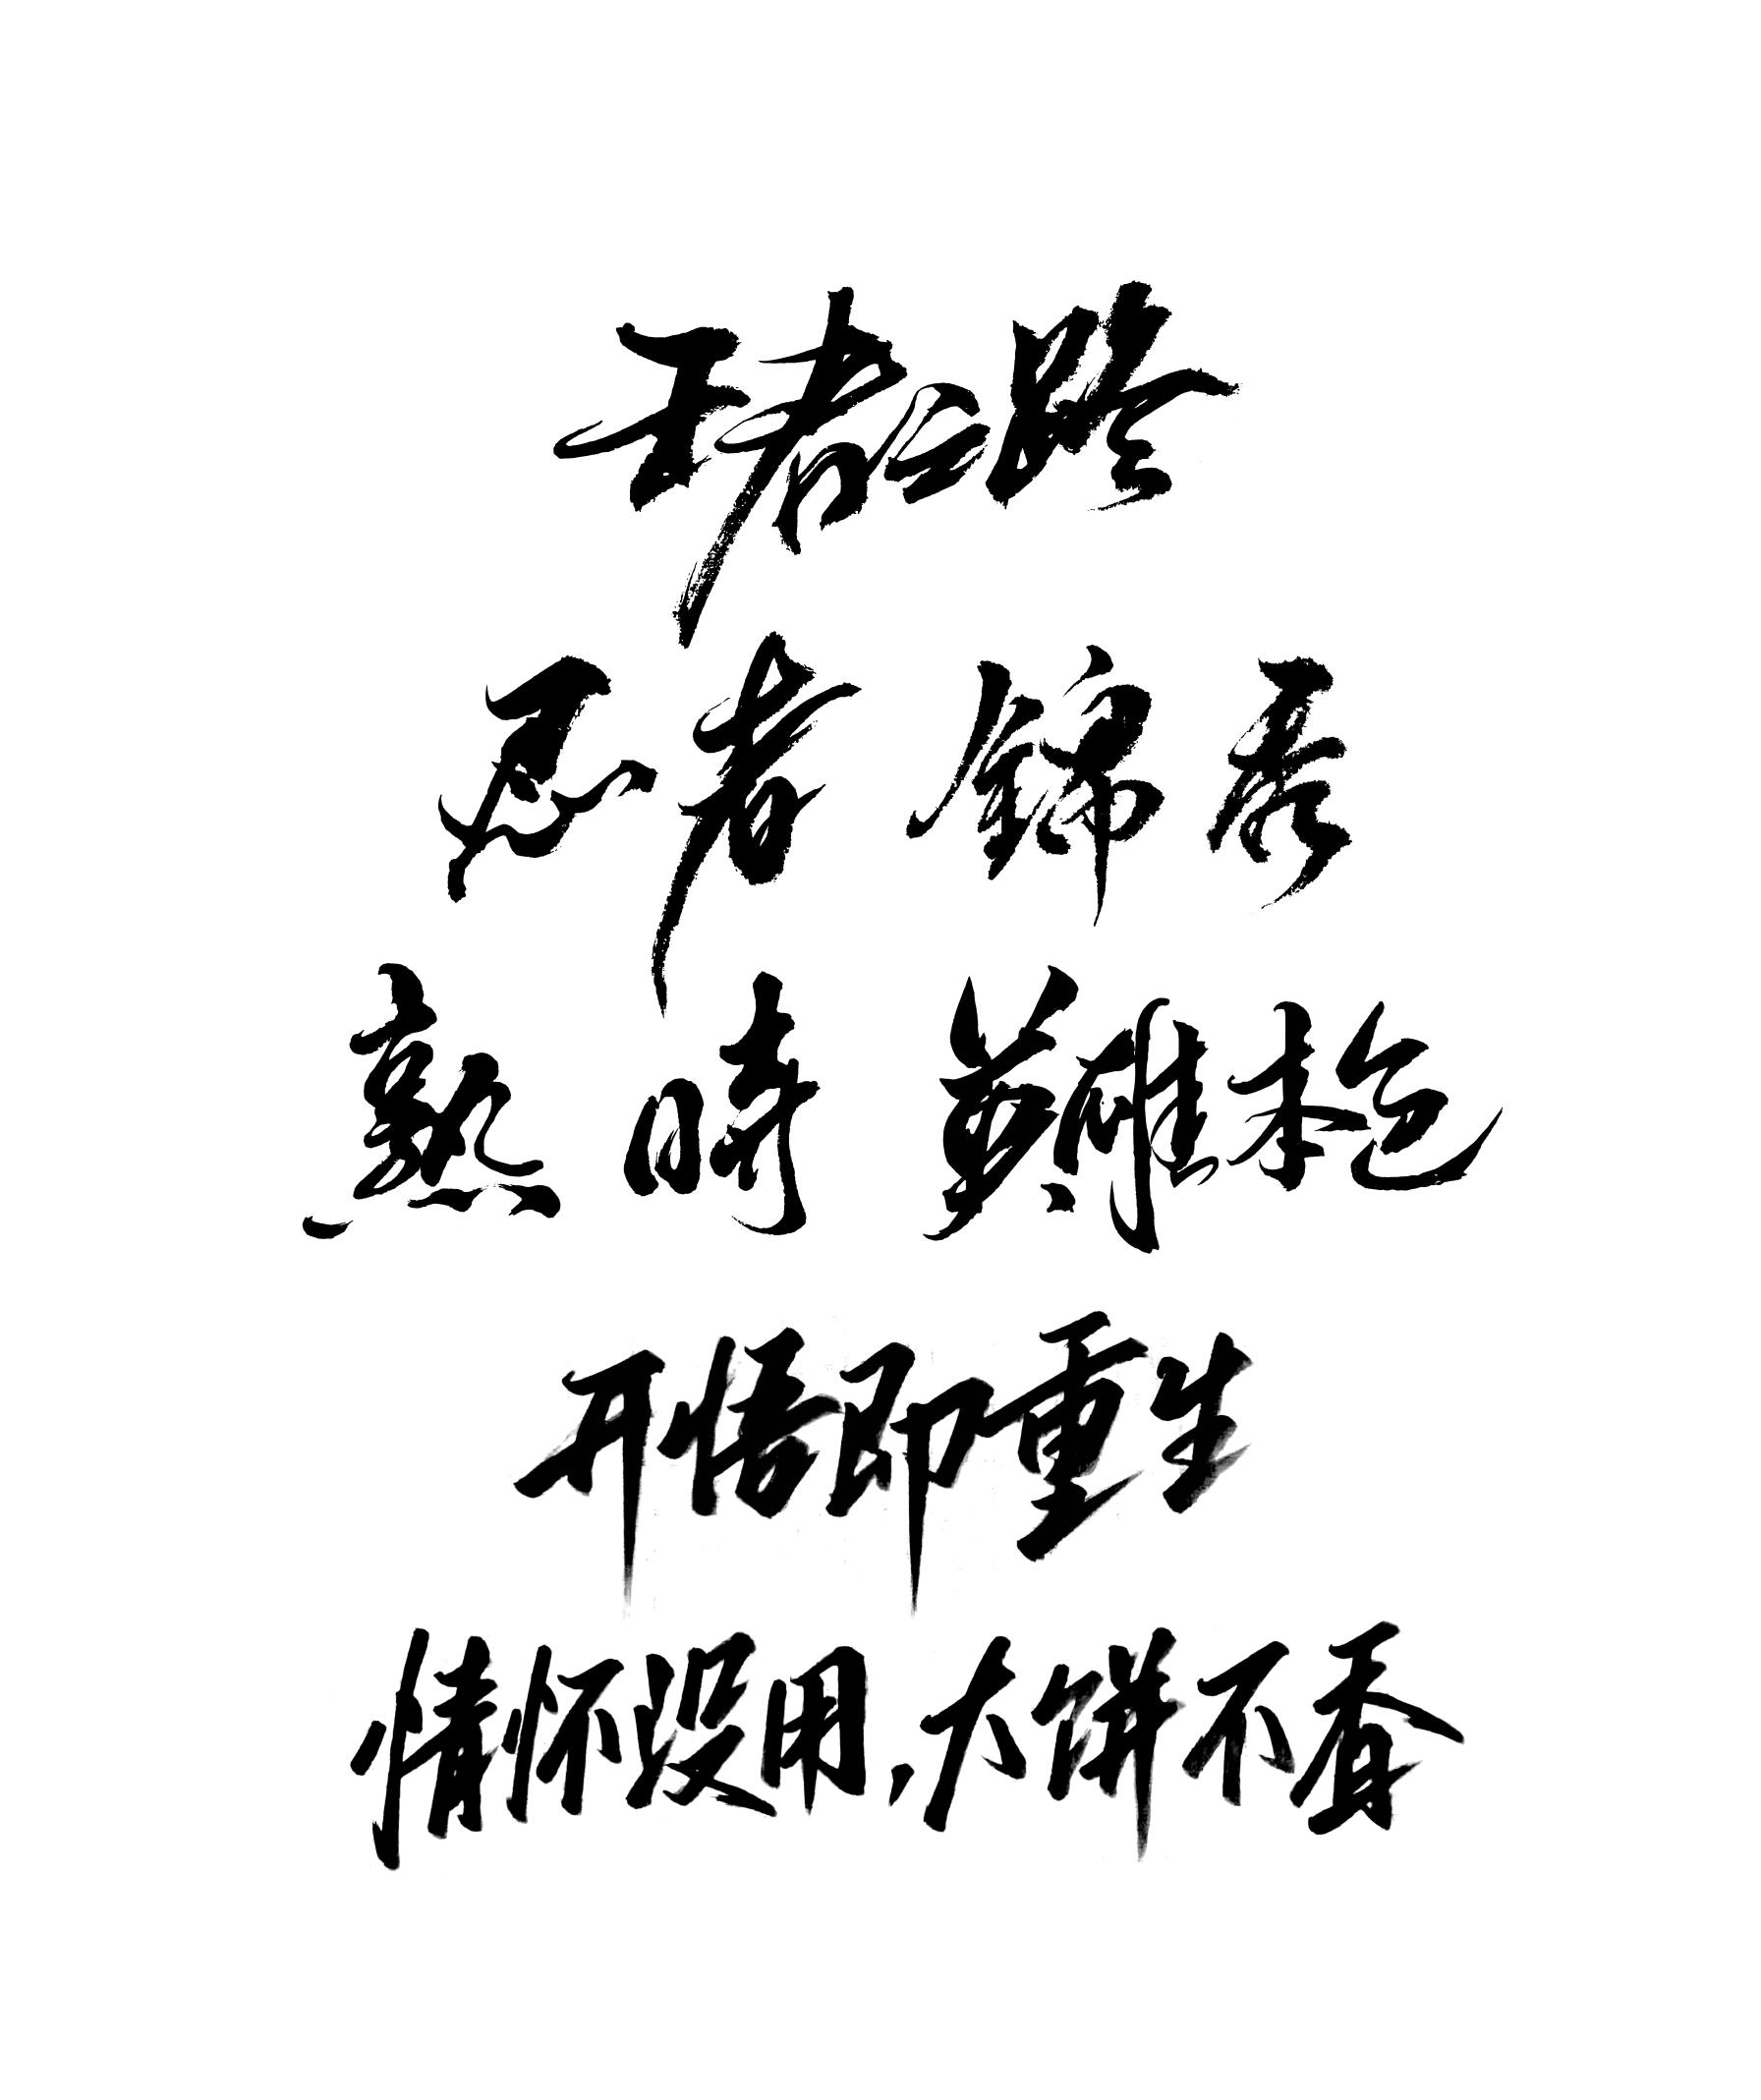 王者公路
忍者 锦秀
熟时 鸡本色
开悟即重生
情怀没用，大饼不香